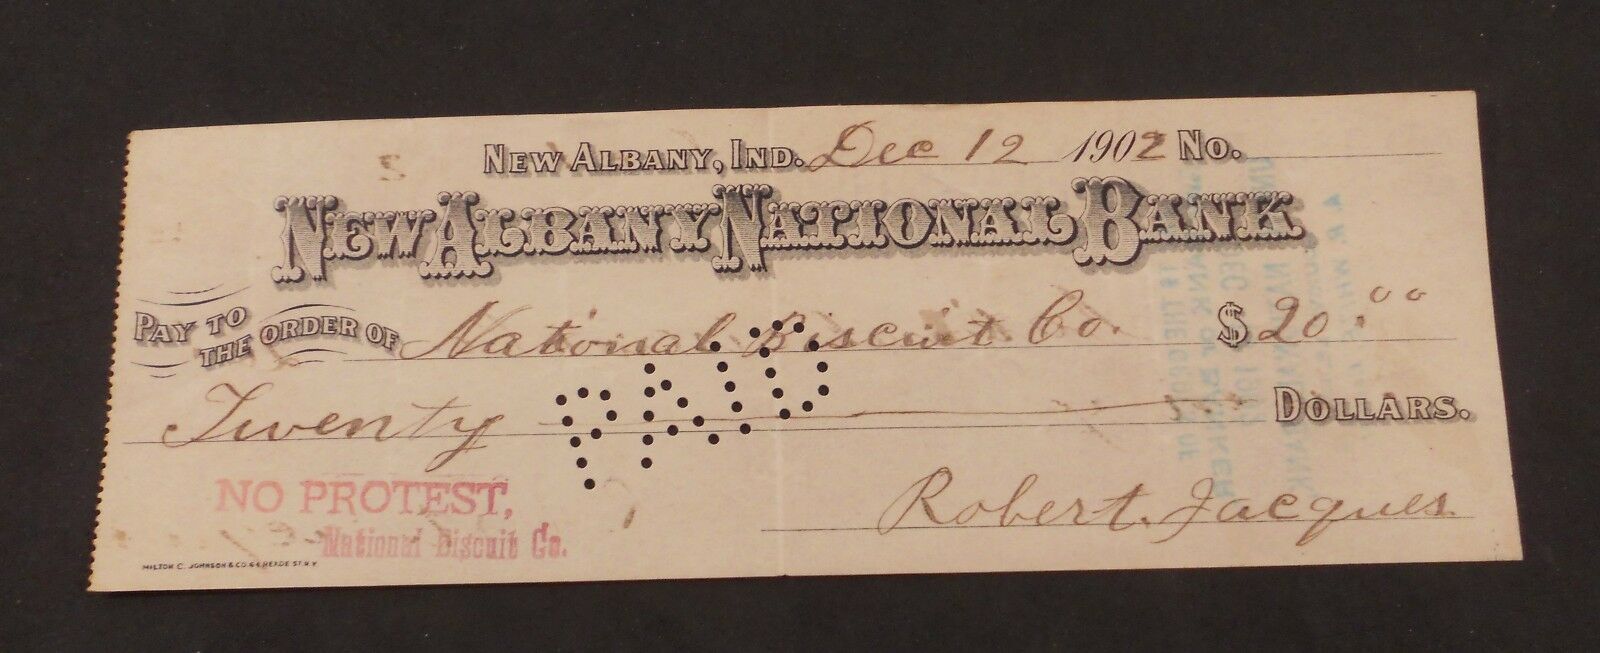 New Albany, Ind. Dec 12 1902 No.
New Albany National Bank
Pay to the order of National Biscuit Co. $ 20.00
Twenty Dollars.
PAID
NO PROTEST,
National Biscuit Co.
Robert. Jacques
MILTON C. JOHNSON & CO. 64 READE ST. N.Y.